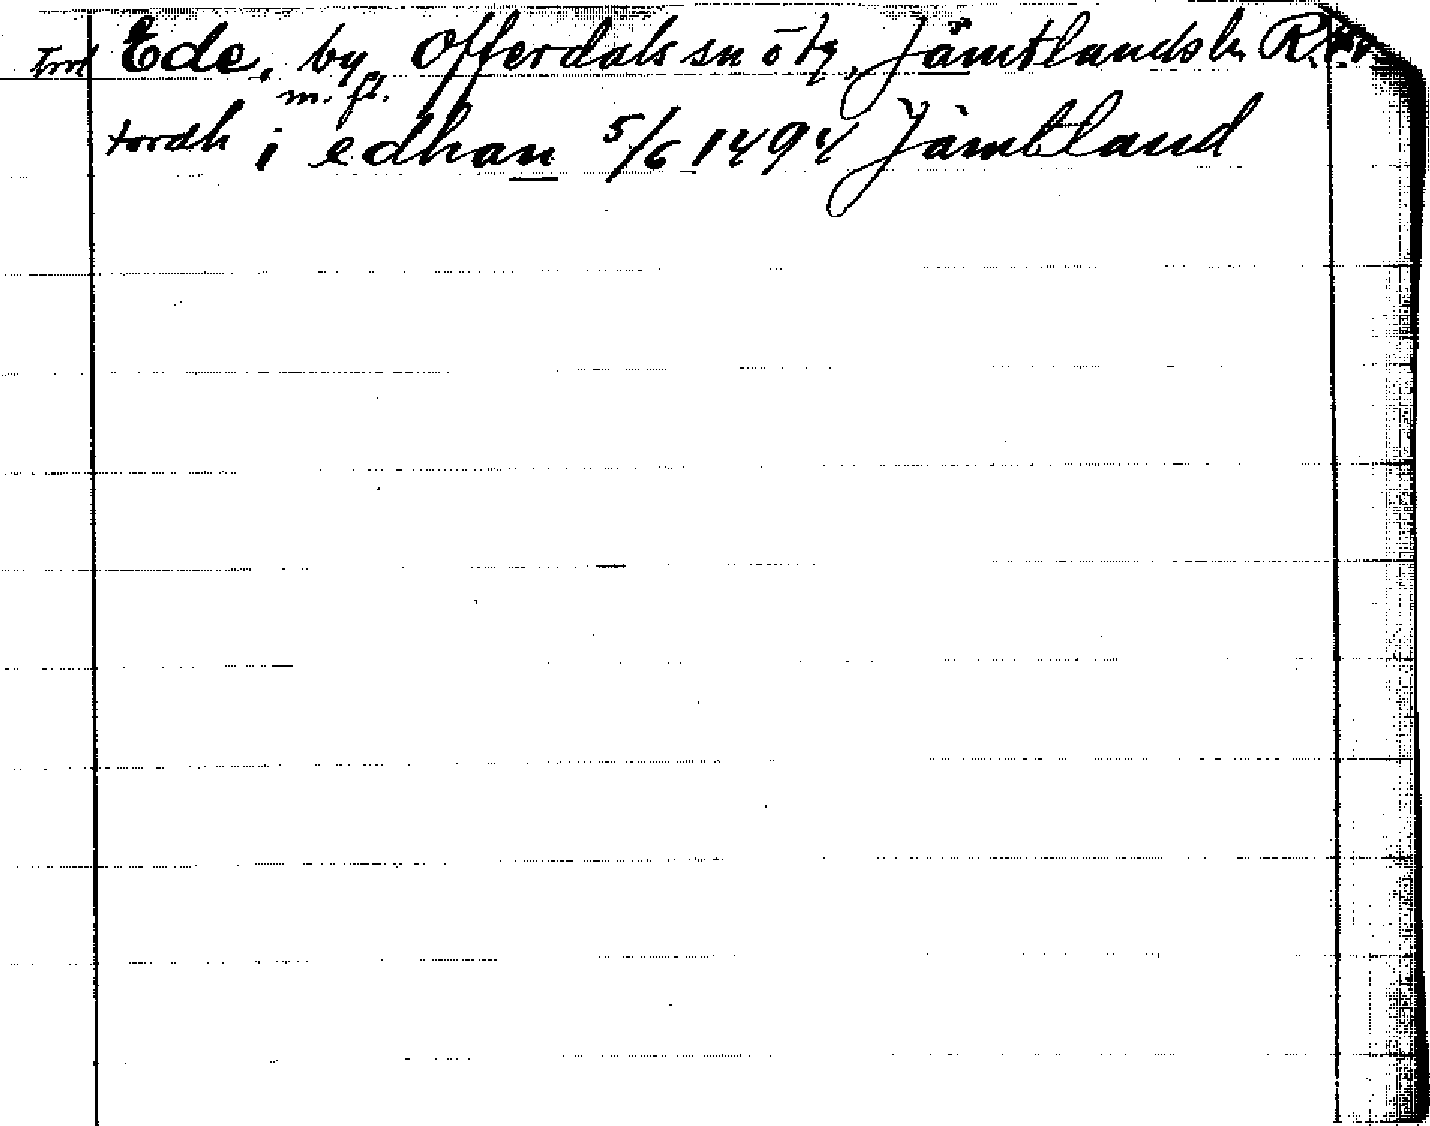 Tord Ede, by Offerdals sn o tg, Jämtlands l. R.
m. fl.
tordh i edhan 5/6 1494 Jämtland